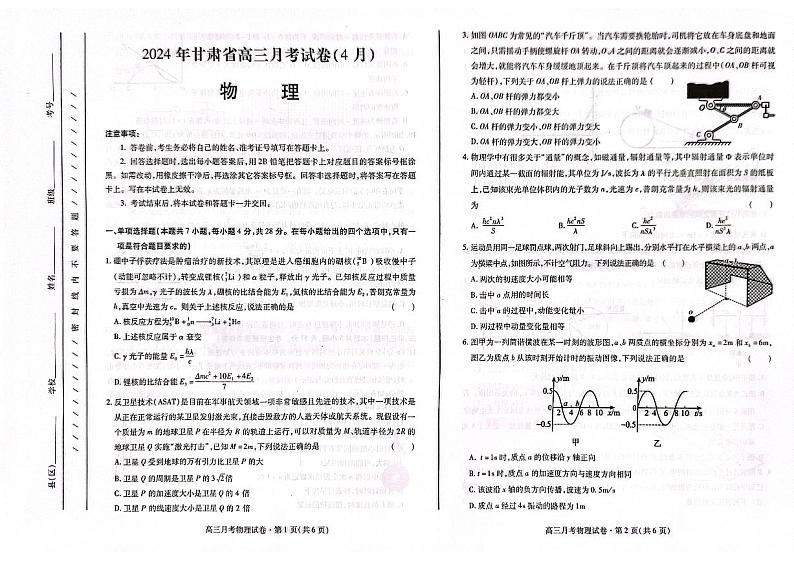 2024年甘肃省高三月考试卷(4月)
物 理
考号
班级
姓名
学校
县(区)
密 封 线 内 不 要 答 题
注意事项:
1. 答卷前,考生务必将自己的姓名、准考证号填写在答题卡上。
2. 回答选择题时,选出每小题答案后,用2B铅笔把答题卡上对应题目的答案标号框涂
黑。如需改动,用橡皮擦干净后,再选涂其它答案标号框。回答非选择题时,将答案写在答题
卡上。写在本试卷上无效。
3. 考试结束后,将本试卷和答题卡一并交回。
一、单项选择题(本题共7小题,每小题4分,共28分。在每小题给出的四个选项中,只有一
项是符合题目要求的)
1. 硼中子俘获疗法是肿瘤治疗的新技术,其原理是进入癌细胞内的硼核(¹⁰₅B)吸收慢中子
(动能可忽略不计),转变成锂核(⁷₃Li)和α粒子,释放出γ光子。已知核反应过程中质量
亏损为Δm,γ光子的波长为λ,硼核的比结合能为E₁,氦核的比结合能为E₂,普朗克常量为
h,真空中光速为c。则关于上述核反应,说法正确的是 ( )
A. 核反应方程为¹⁰₅B+¹₀n→⁷₃Li+⁴₂He
B. 上述核反应属于α衰变
C. γ光子的能量E₀=hλ/c
D. 锂核的比结合能E₃=(Δmc²+10E₁+4E₂)/7
2. 反卫星技术(ASAT)是目前在军事航天领域一项非常敏感且先进的技术,其中一项技术是
从正在正常运行的某卫星发射激光束,直接击毁敌方的人造天体或航天系统。现假设有一
个质量为m的地球卫星P在半径为R的轨道上运行,可以对质量为M、轨道半径为2R的
地球卫星Q实施“激光打击”,已知M=2m,下列说法正确的是 ( )
A. 卫星Q受到地球的万有引力比卫星P的大
B. 卫星Q的周期是卫星P的3√2倍
C. 卫星P的加速度大小是卫星Q的4倍
D. 卫星P的线速度大小是卫星Q的2倍
高三月考物理试卷·第1页(共6页)
3. 如图OABC为常见的“汽车千斤顶”。当汽车需要换轮胎时,司机将它放在车身底盘和地面
之间,只需摇动手柄使螺旋杆OA转动,O、A之间的距离就会逐渐减小,O、C之间的距离就
会增大,就能将汽车车身缓缓地顶起来。在千斤顶将汽车顶起来的过程中(OA、OB杆可视
为轻杆),下列关于OA、OB杆上弹力的说法正确的是 ( )
A. OA、OB杆的弹力都变小
B. OA、OB杆的弹力都变大
C. OA杆的弹力变小、OB杆的弹力变大
D. OA杆的弹力变大、OB杆的弹力变小
O
A
B
C
4. 物理学中有很多关于“通量”的概念,如磁通量,辐射通量等,其中辐射通量Φ表示单位时
间内通过某一截面的辐射能,其单位为J/s,波长为λ的平行光垂直照射在面积为S的纸板
上,已知该束光单位体积内的光子数为n,光速为c,普朗克常量为h,则该束光的辐射通量
为 ( )
A. hc²nλ³/S B. hc²nS/λ C. hc²/nSλ³ D. hc²/nS²λ
5. 运动员用同一足球罚点球,两次射门,足球斜向上踢出,分别水平打在水平横梁上的a、b两点,a
为横梁中点,如图所示,不计空气阻力。下列说法正确的是 ( )
A. 两次的初速度大小可能相等
B. 击中a点用的时间长
C. 击中a的过程中,动能变化量小
D. 两过程中动量变化量相等
a
b
o
6. 图甲为一列简谐横波在某一时刻的波形图,a、b两质点的横坐标分别为xₐ=2m和x_b=6m,
图乙为质点b从该时刻开始计时的振动图像,下列说法正确的是 ( )
y/m
0.5
a b
0 2 4 6 8 10 x/m
-0.5
甲
y/m
0.5
0 2 4 6 8 10 t/s
-0.5
乙
A. t=1s时,质点a的位移沿y轴正向
B. t=1s时,质点a的加速度方向与速度方向相同
C. 该波沿x轴的负方向传播,波速为0.5m/s
D. 质点a经过4s振动的路程为1m
高三月考物理试卷·第2页(共6页)